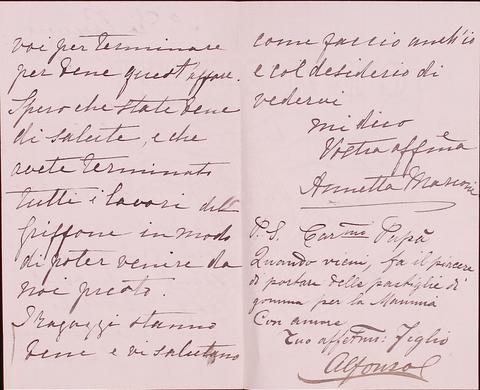 voi per terminare
per bene quest'affare.
Spero che state bene
di salute, e che
avete terminato
tutti i lavori del
Griffone in modo
di poter venire da
noi presto.
I ragazzi stanno
bene e vi salutano
come faccio anch'io
e col desiderio di
vedervi
mi dico
Vostra affma
Annetta
P.S. Carmo Papà
Quando vieni, fa il piacere
di portare delle pastiglie di
gomma per la Mamma
Con amore
Tuo affetmo: Figlio
Alfonso